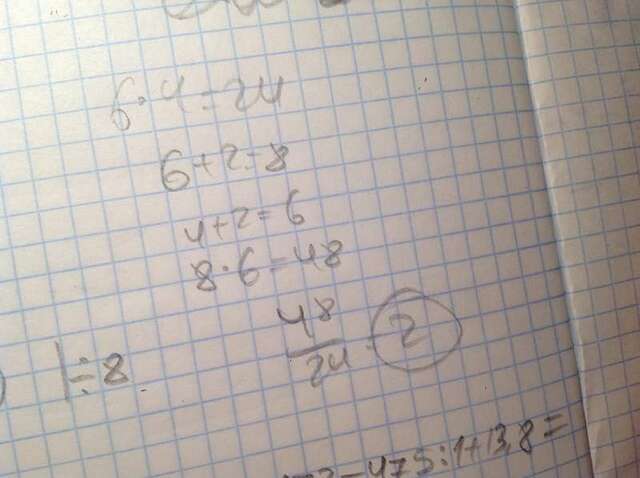 6·4=24
6+2=8
4+2=6
8·6=48
48/24=2
÷2
-475:1+13,8=